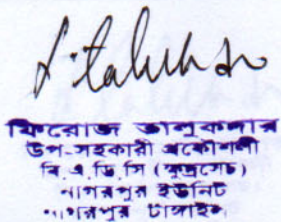 ফিরোজ তালুকদার
উপ-সহকারী প্রকৌশলী
বি,এ,ডি,সি (ক্ষুদ্রসেচ)
নাগরপুর ইউনিট
নাগরপুর টাঙ্গাইল